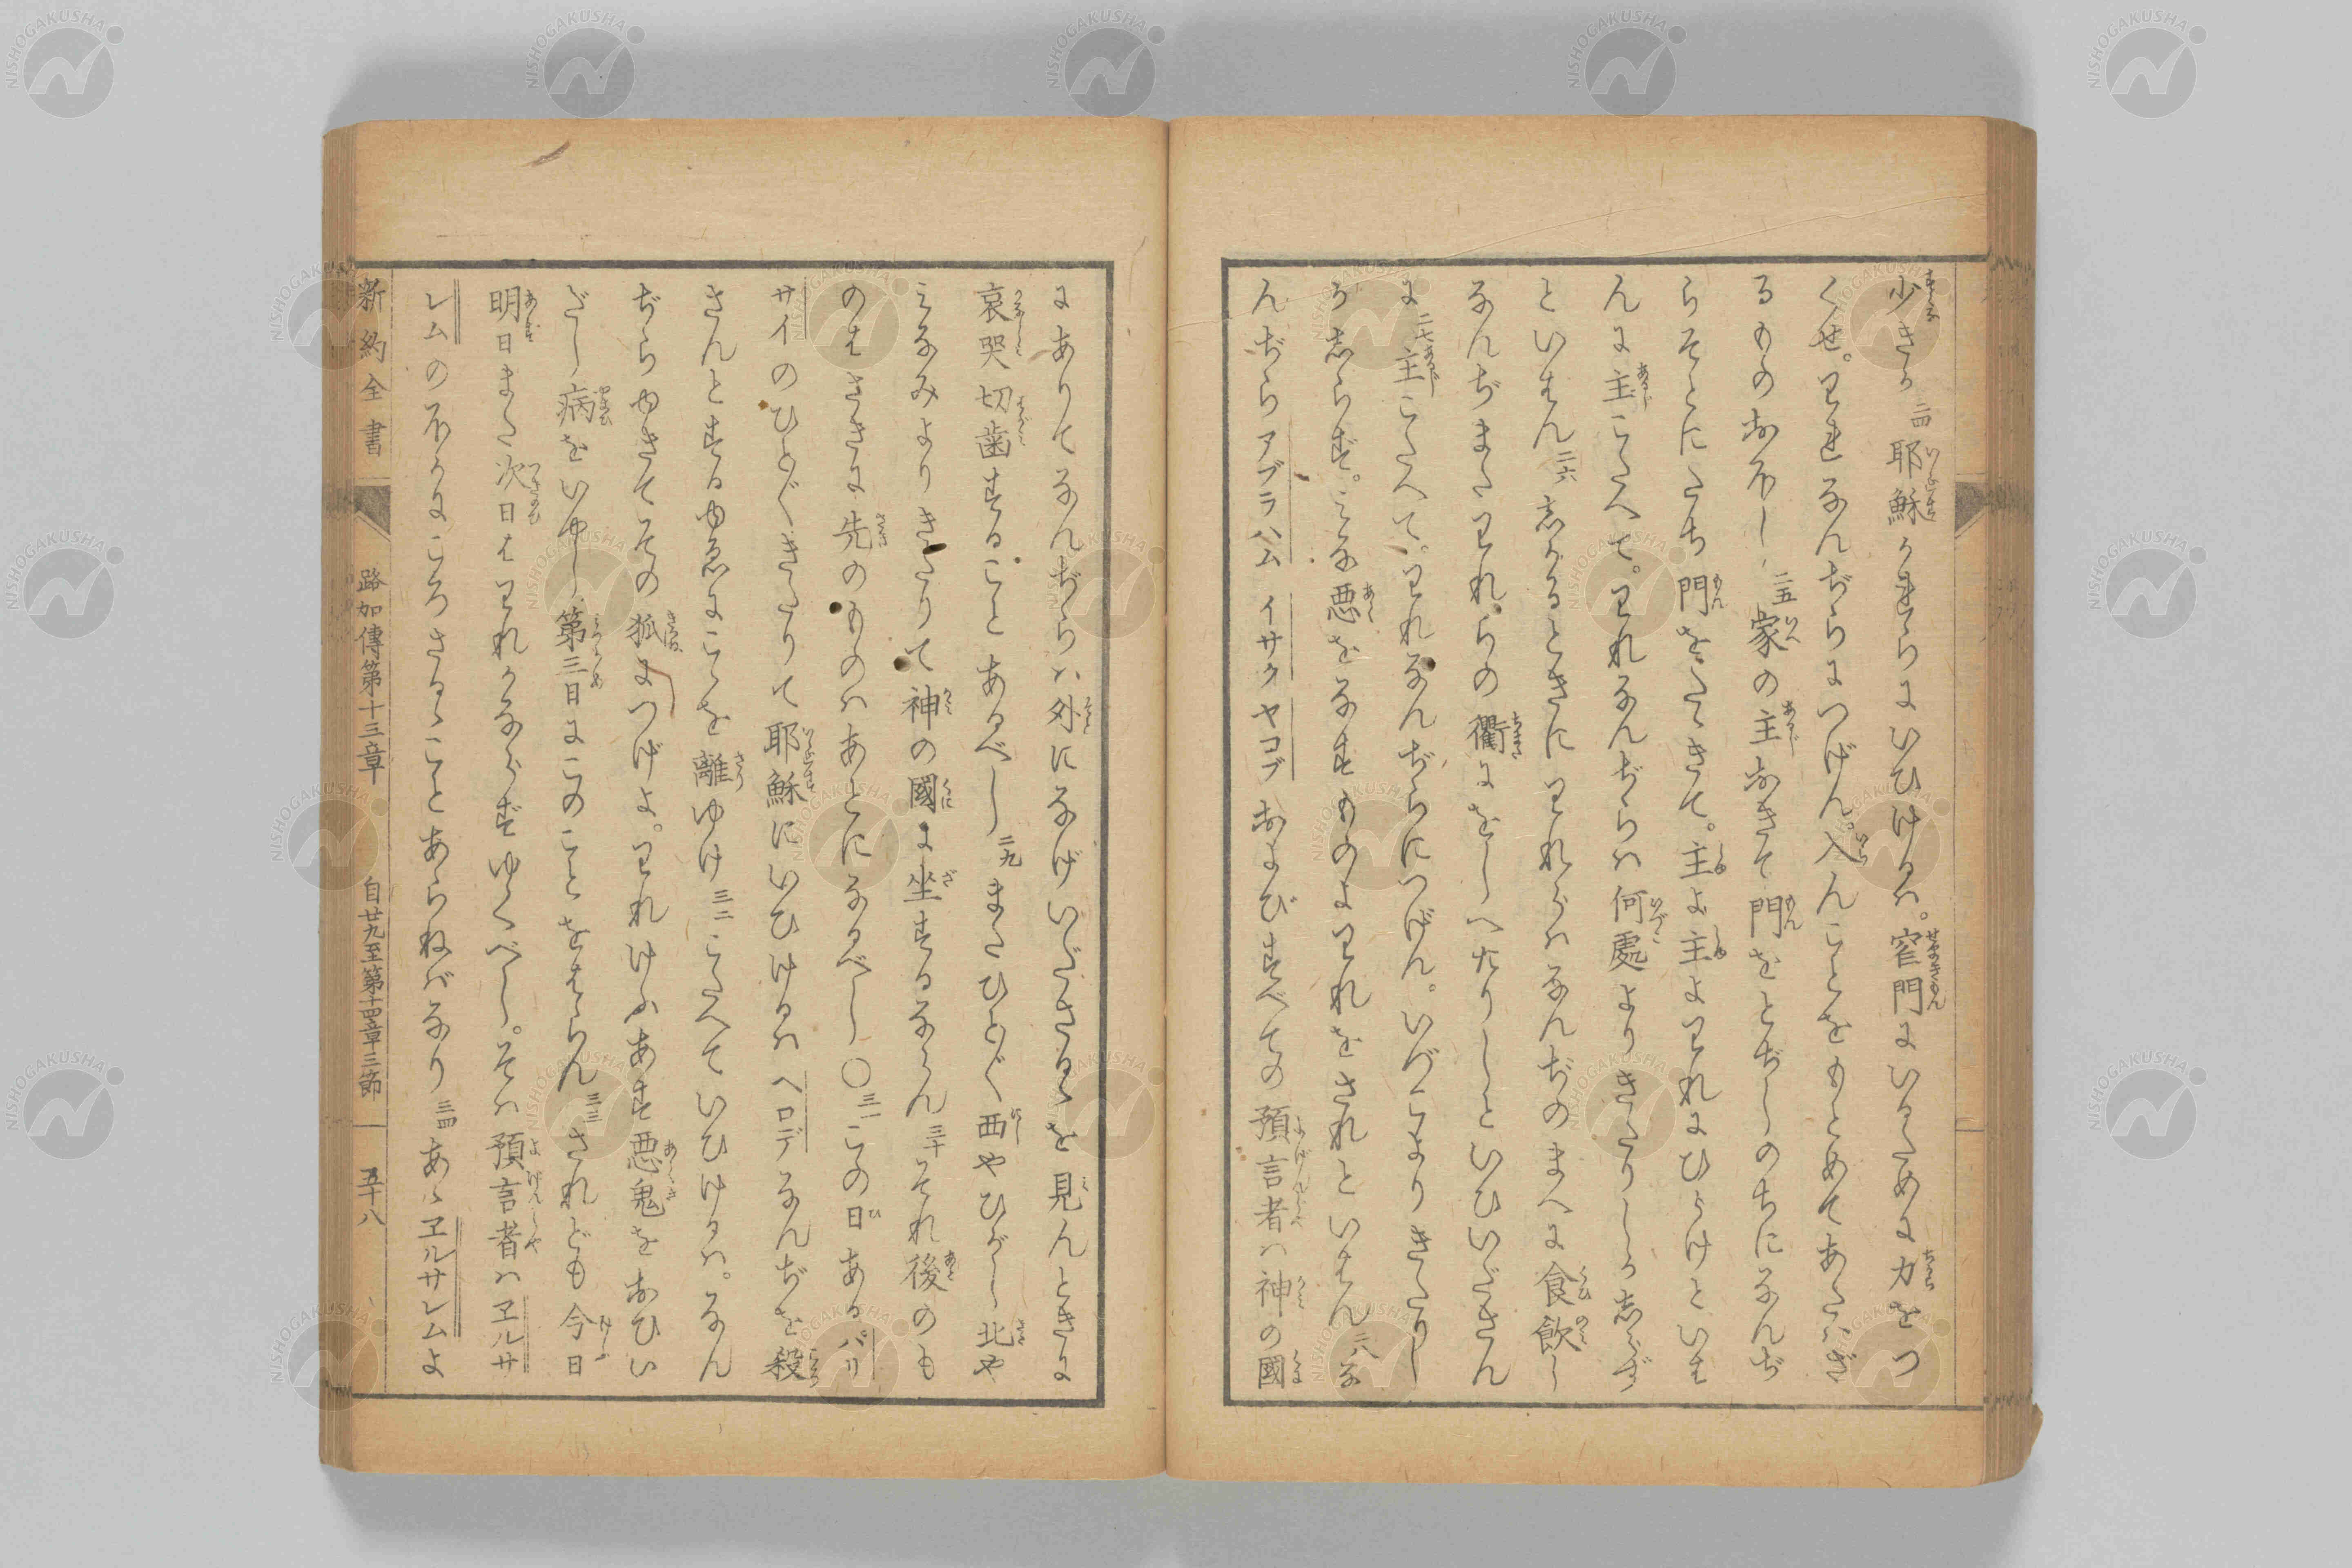 少きか 二四 耶穌かれらにいひけるハ。窄門にいるために力をつ
くせ。われなんぢらにつげん。入んことをもとめてあたハざ
るものおほし 二五 家の主おきて門をとぢしのちになんぢ
らそとにたち門をたゝきて。主よ主よわれにひらけといは
んに主こたへて。われなんぢらハ何處よりきたりしか志らず
といはん 二六 志かるときにわれらハなんぢのまへに食飲し
なんぢまたわれらの衢にをしへたりしといひいださん
に 二七 主こたへて。われなんぢらにつげん。いづこよりきたりし
か志らず。みな悪をなすものよわれをされといはん 二八 な
んぢらアブラハム イサク ヤコブおよびすべての預言者ハ神の國
にありてなんぢらハ外になげいださるゝを見んときに
哀哭切歯することあるべし 二九 またひとびと西やひがし北や
みなみよりきたりて神の國に坐するならん 三十 それ後のも
のはさきに先のものハあとになるべし ○ 三一 この日あるパリ
サイのひとびときたりて耶穌にいひけるハ ヘロデなんぢを殺
さんとするゆゑにこゝを離ゆけ 三二 こたへていひけるハ。なん
ぢらゆきてその狐につげよ。われけふあす悪鬼をおひい
だし病をいやし第三日にこのことををはらん 三三 されども今日
明日また次日はわれかならずゆくべし。そハ預言者ハヱルサ
レムのほかにころさるゝことあらねバなり 三四 あゝヱルサレムよ
新約全書 路加傳第十三章 自廿九至第十四章三節 五十八
NISHOGAKUSHA